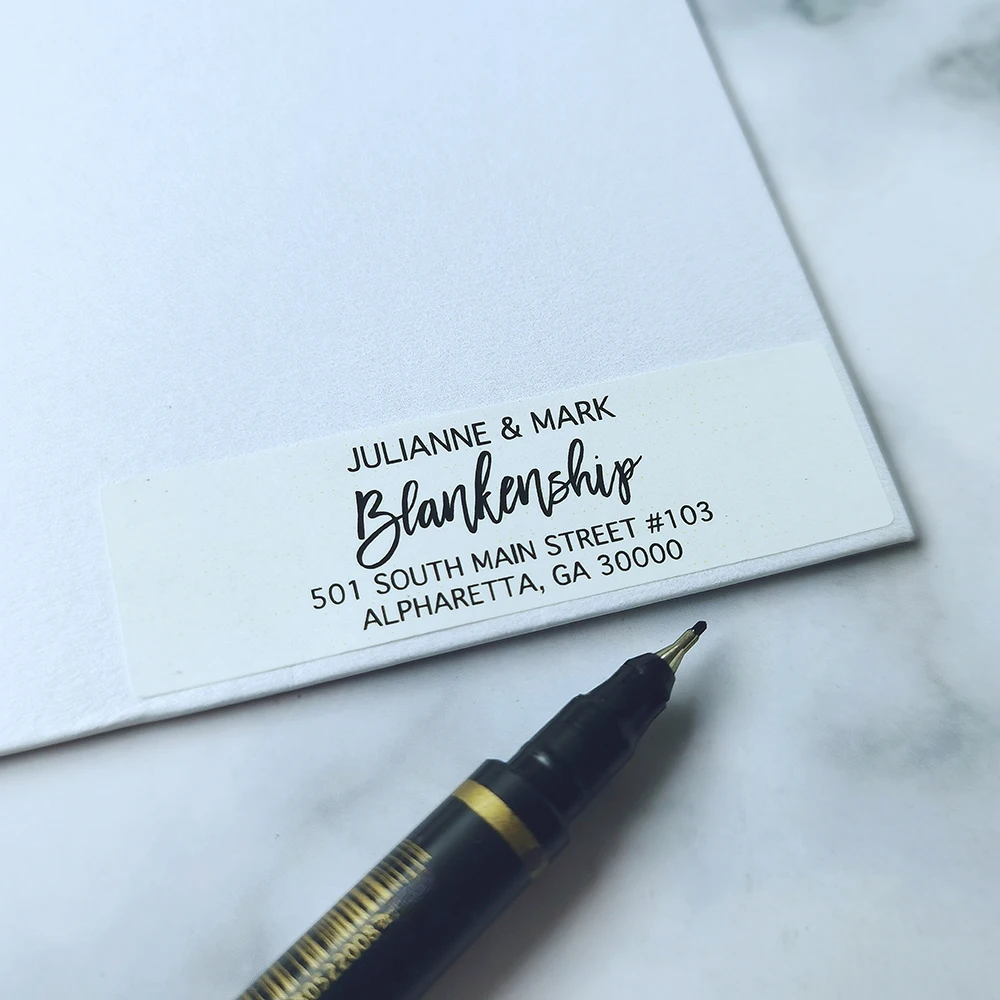 JULIANNE & MARK
Blankenship
501 SOUTH MAIN STREET #103
ALPHARETTA, GA 30000